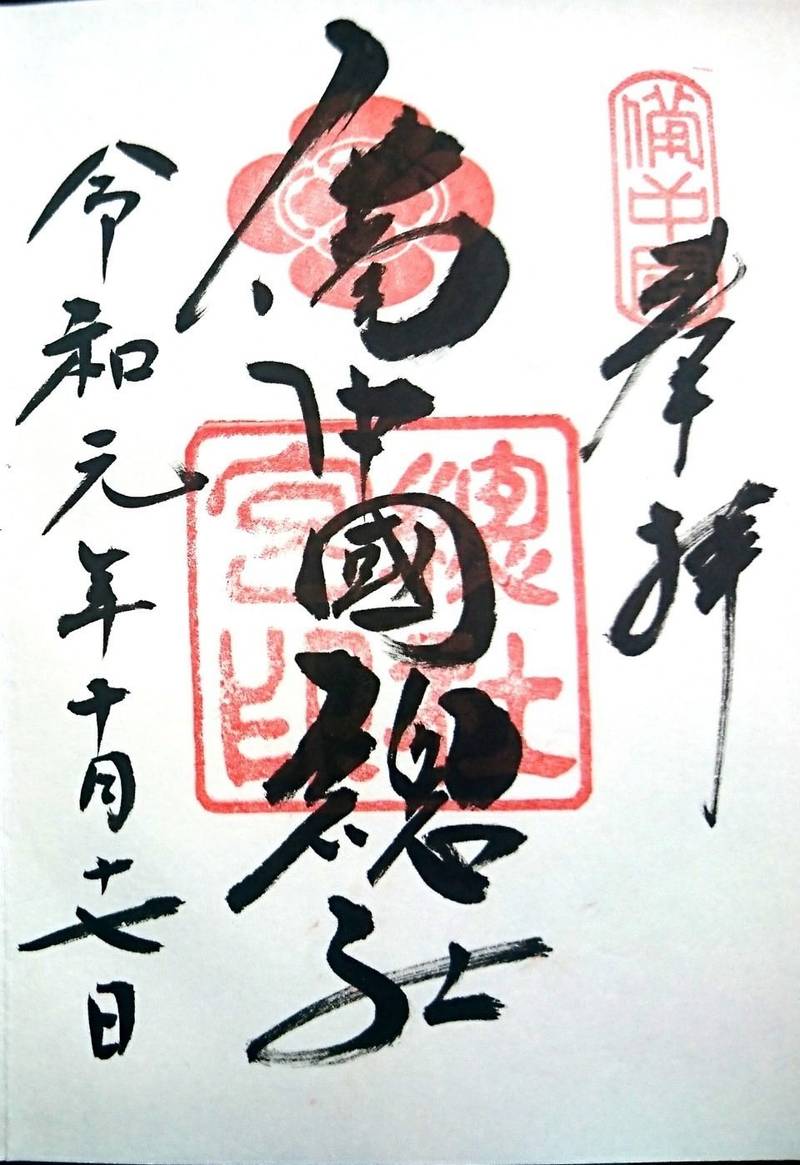 備中国
奉拝
備中國總社
總社
宮印
令和元年十月十七日